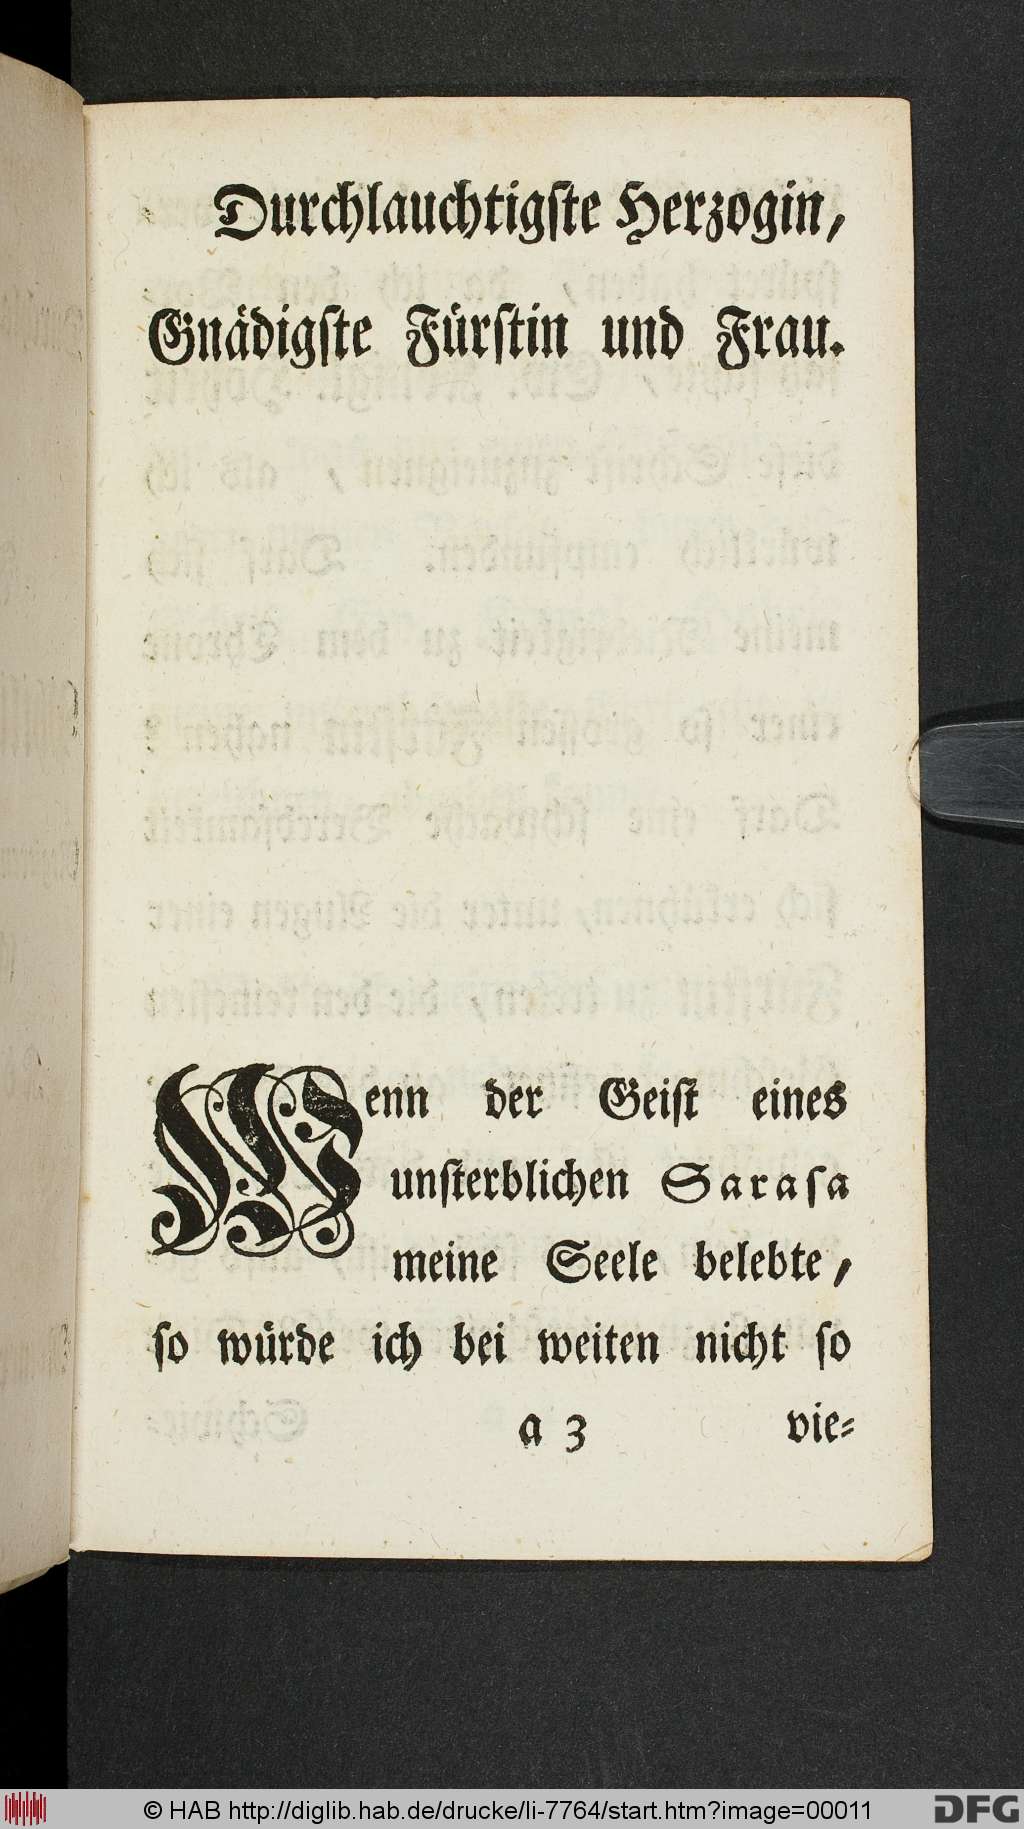 Durchlauchtigſte Herzogin,
Gnädigſte Fürſtin und Frau.
Wenn der Geiſt eines
unſterblichen Saraſa
meine Seele belebte,
ſo würde ich bei weiten nicht ſo
a 3
vie⸗
© HAB http://diglib.hab.de/drucke/li-7764/start.htm?image=00011
DFG